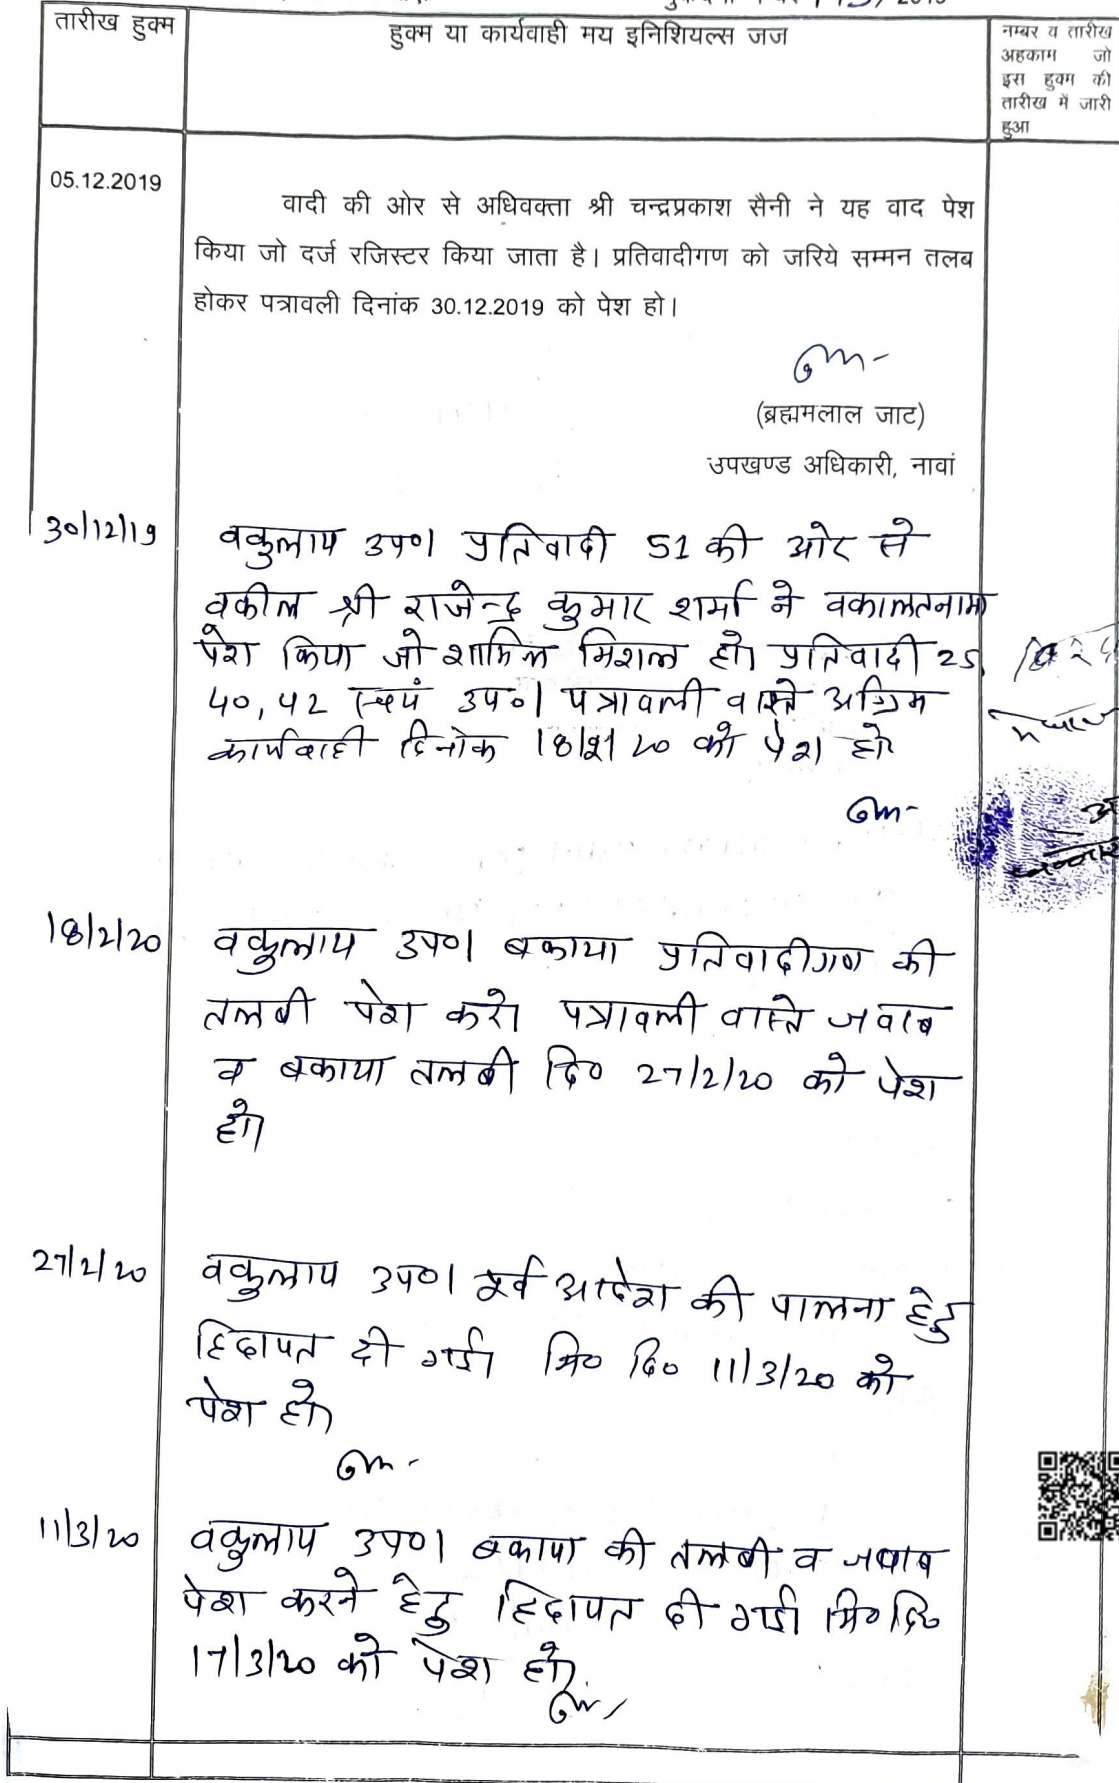 तारीख हुक्म
हुक्म या कार्यवाही मय इनिशियल्स जज
नम्बर व तारीख
अहकाम जो
इस हुक्म की
तारीख में जारी
हुआ
05.12.2019
वादी की ओर से अधिवक्ता श्री चन्द्रप्रकाश सैनी ने यह वाद पेश
किया जो दर्ज रजिस्टर किया जाता है। प्रतिवादीगण को जरिये सम्मन तलब
होकर पत्रावली दिनांक 30.12.2019 को पेश हो।
(ब्रह्ममलाल जाट)
उपखण्ड अधिकारी, नावां
30/12/19
वकुलाय उप०। प्रतिवादी 51 की ओर से
वकील श्री राजेन्द्र कुमार शर्मा ने वकालतनामा
पेश किया जो शामिल मिशल हो। प्रतिवादी 25,
40, 42 स्वयं उप०। पत्रावली वास्ते अग्रिम
कार्यवाही दिनांक 18/2/20 को पेश हो
18/2/20
वकुलाय उप०। बकाया प्रतिवादीगण की
तलबी पेश करे। पत्रावली वास्ते जवाब
व बकाया तलबी दि० 27/2/20 को पेश
हो।
27/2/20
वकुलाय उप०। पूर्व आदेश की पालना हेतु
हिदायत दी गई। मि० दि० 11/3/20 को
पेश हो।
11/3/20
वकुलाय उप०। बकाया की तलबी व जवाब
पेश करने हेतु हिदायत दी गई। मि० दि०
17/3/20 को पेश हो।